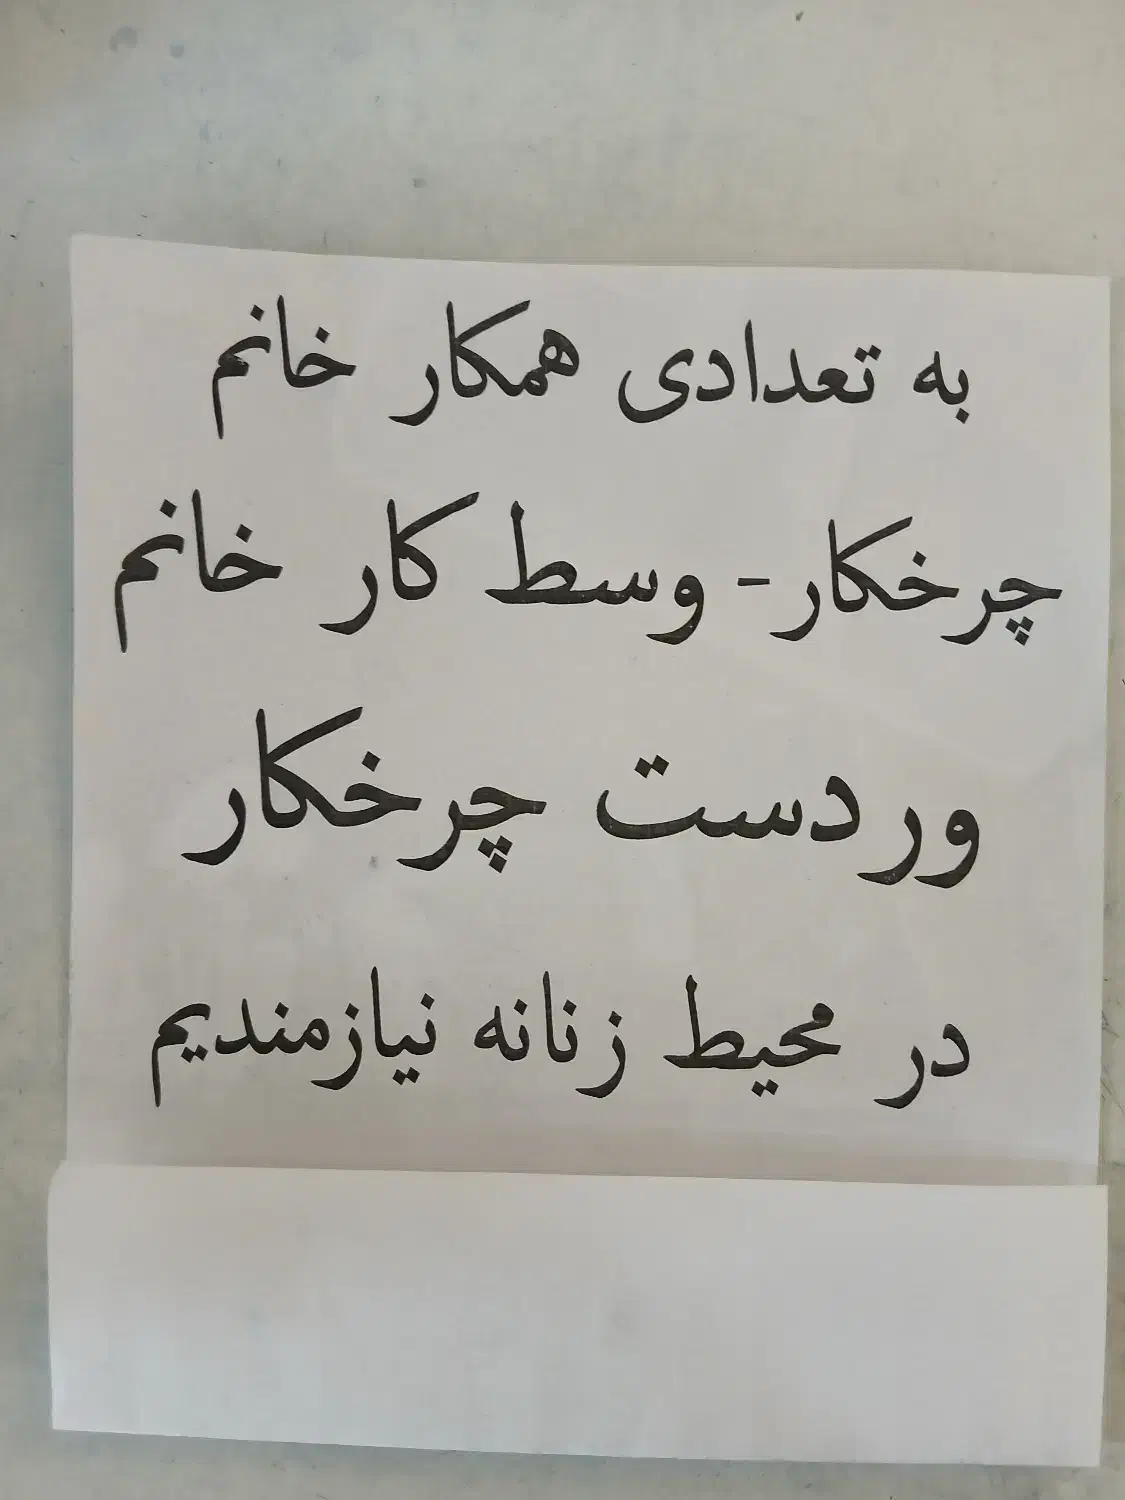 به تعدادی همکار خانم
چرخکار- وسط کار خانم
وردست چرخکار
در محیط زنانه نیازمندیم